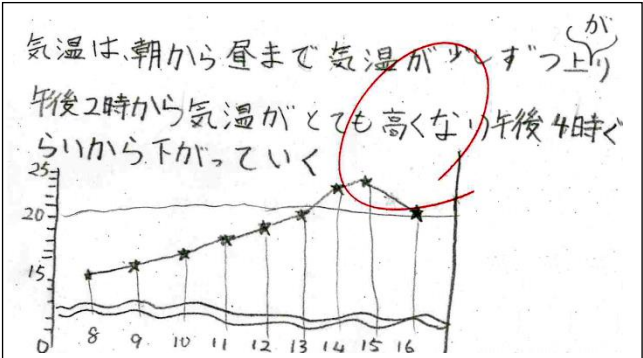 気温は、朝から昼まで気温が少しずつ上がり
午後2時から気温がとても高くなり午後4時ぐ
らいから下がっていく
25
20
15
0
8 9 10 11 12 13 14 15 16